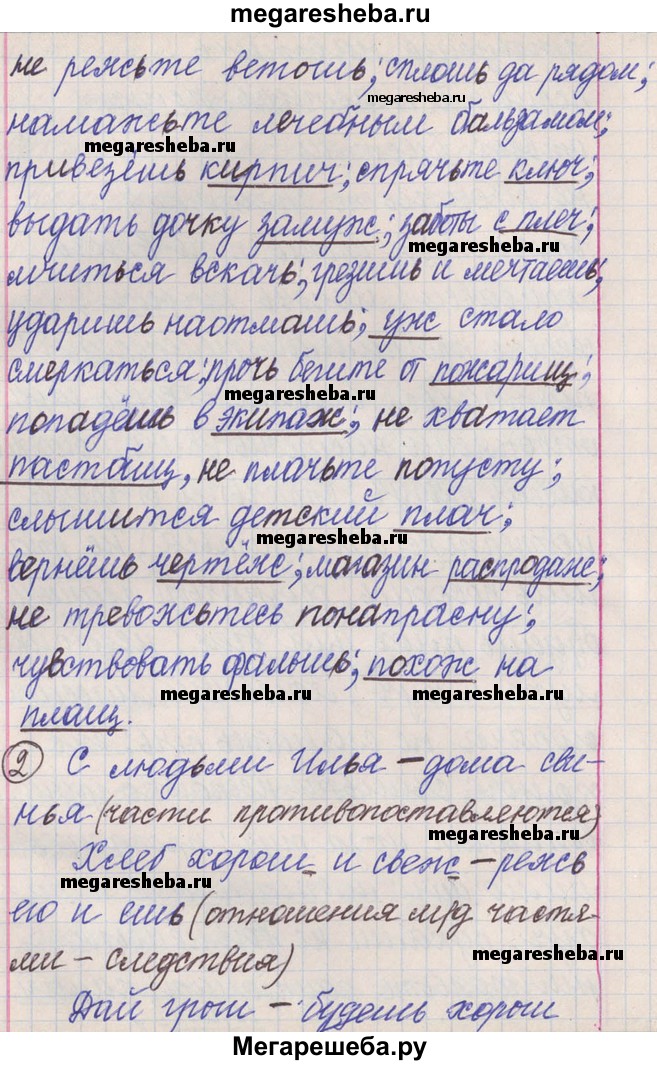 megaresheba.ru
не режьте ветошь; сплошь да рядом;
megaresheba.ru
намажьте лечебным бальзамом;
megaresheba.ru
привезёшь кирпич; спрячьте ключ;
выдать дочку замуж; заботы с плеч;
megaresheba.ru
мчиться вскачь; грезишь и мечтаешь;
ударишь наотмашь; уж стало
megaresheba.ru
смеркаться; прочь бегите от пожарищ;
megaresheba.ru
попадёшь в экипаж; не хватает
пастбищ, не плачьте попусту;
слышится детский плач;
megaresheba.ru
вернёшь чертёж; магазин распродаж;
megaresheba.ru
не тревожьтесь понапрасну;
чувствовать фальшь; похож на
megaresheba.ru megaresheba.ru
плащ.
2 С людьми Илья – дома сви-
нья (части противопоставляются)
megaresheba.ru
Хлеб хорош и свеж – режь
megaresheba.ru
его и ешь (отношения м/д частя-
ми – следствия)
megaresheba.ru
Дай грош – будешь хорош
Мегарешеба.ру